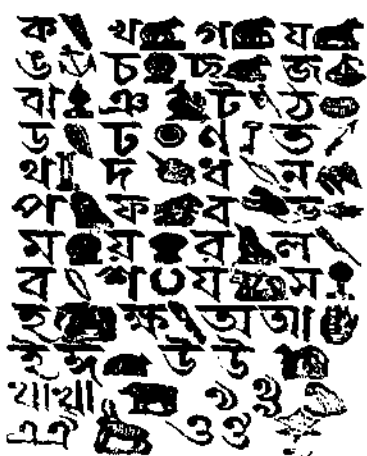 ক খ গ য
ঙ চ চ্ছ জ
ঝা ঞ ট ঠ
ড ঢ ণ ত
থ দ ধ ন
প ফ ব ভ
ম য় র ল
ব শ য স
হ ক্ষ অ আ
ই ঈ উ ঊ
এ ঐ ও ঔ